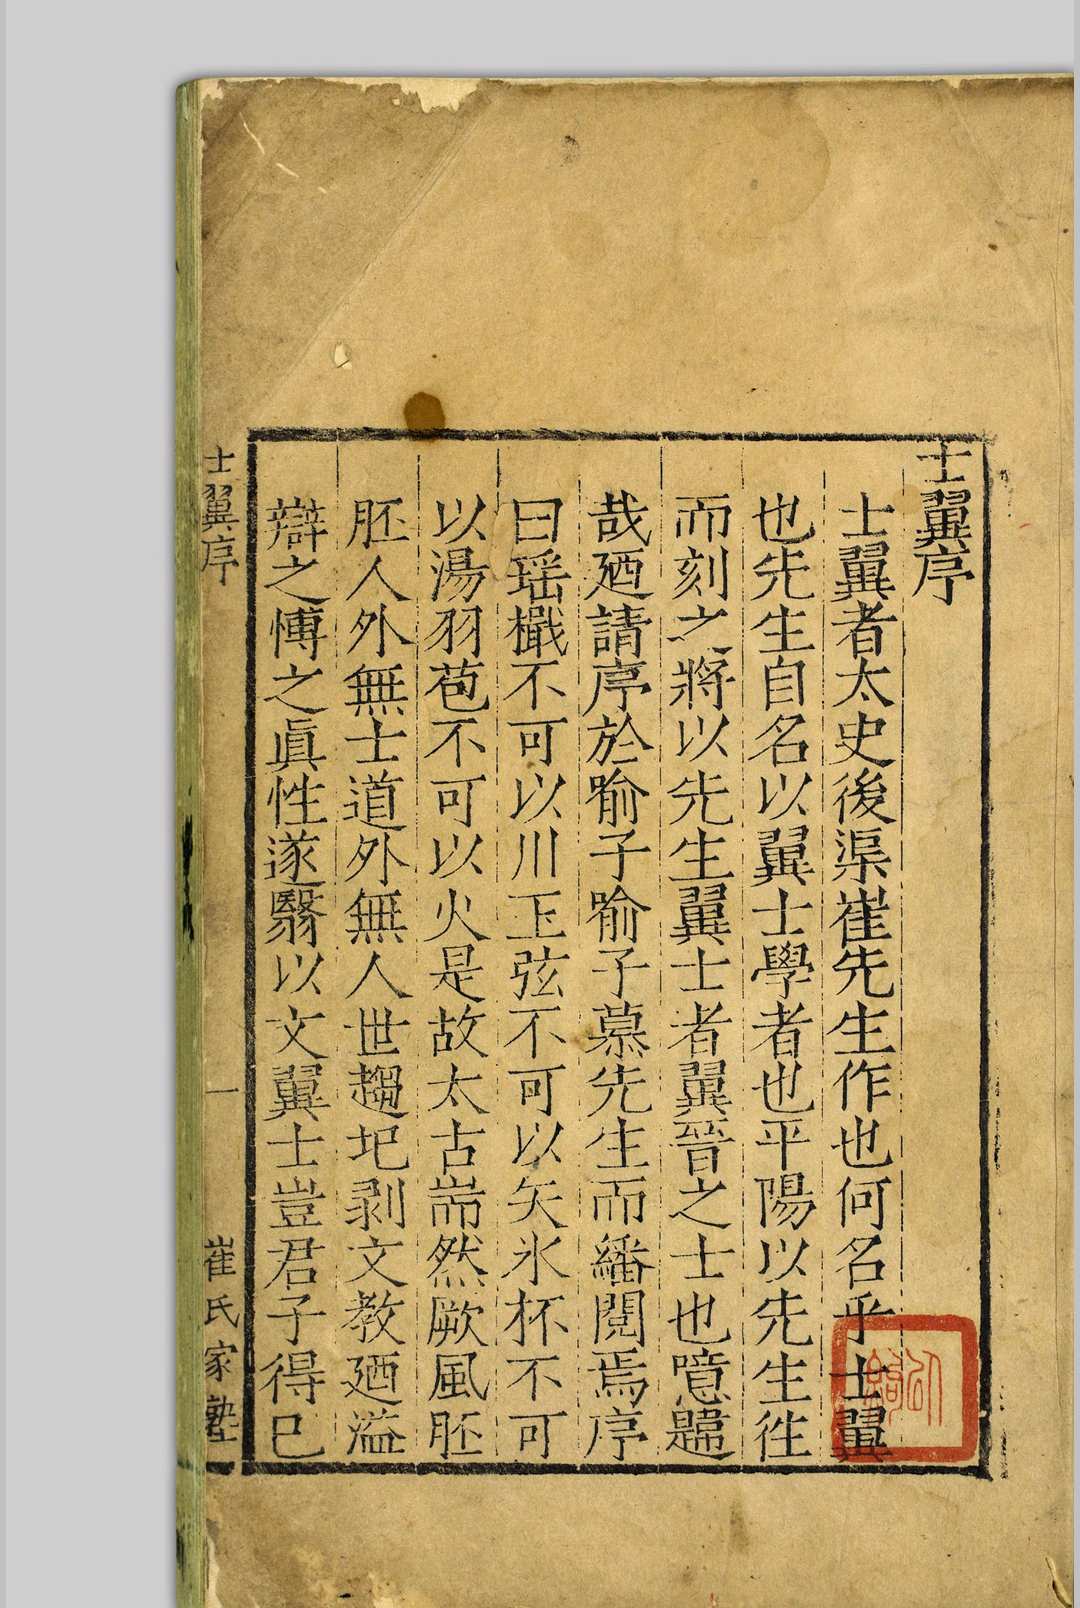 士翼序
士翼者太史後渠崔先生作也何名乎士翼
也先生自名以翼士學者也平陽以先生徃
而刻之將以先生翼士者翼晉之士也噫韙
哉廼請序於喻子喻子慕先生而繙閱焉序
曰瑶檝不可以川玉弦不可以矢氷杯不可
以湯羽苞不可以火是故太古耑然厥風胚
胚人外無士道外無人世趨圮剥文教廼溢
辯之愽之眞性遂翳以文翼士豈君子得已
士翼序 一 崔氏家塾